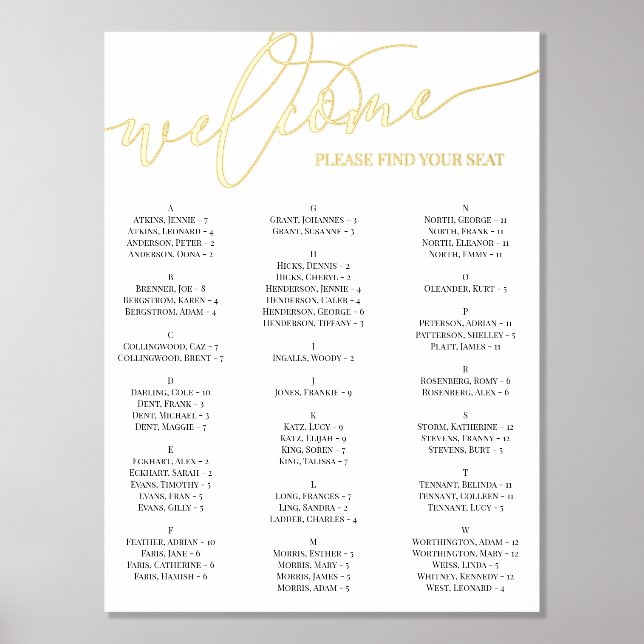 welcome
PLEASE FIND YOUR SEAT
A
Atkins, Jennie - 7
Atkins, Leonard - 4
Anderson, Peter - 2
Anderson, Oona - 2
B
Brenner, Joe - 8
Bergstrom, Karen - 4
Bergstrom, Adam - 4
C
Collingwood, Caz - 7
Collingwood, Brent - 7
D
Darling, Cole - 10
Dent, Frank - 3
Dent, Michael - 3
Dent, Maggie - 7
E
Eckhart, Alex - 2
Eckhart, Sarah - 2
Evans, Timothy - 5
Evans, Fran - 5
Evans, Gilly - 5
F
Feather, Adrian - 10
Faris, Jane - 6
Faris, Catherine - 6
Faris, Hamish - 6
G
Grant, Johannes - 3
Grant, Susanne - 3
H
Hicks, Dennis - 2
Hicks, Cheryl - 2
Henderson, Jennie - 4
Henderson, Caleb - 4
Henderson, George - 6
Henderson, Tiffany - 3
I
Ingalls, Woody - 2
J
Jones, Frankie - 9
K
Katz, Lucy - 9
Katz, Elijah - 9
King, Soren - 7
King, Talissa - 7
L
Long, Frances - 7
Ling, Sandra - 2
Ladder, Charles - 4
M
Morris, Esther - 5
Morris, Mary - 5
Morris, James - 5
Morris, Adam - 5
N
North, George - 11
North, Frank - 11
North, Eleanor - 11
North, Emmy - 11
O
Oleander, Kurt - 5
P
Peterson, Adrian - 11
Patterson, Shelley - 5
Platt, James - 11
R
Rosenberg, Romy - 6
Rosenberg, Alex - 6
S
Storm, Katherine - 12
Stevens, Franny - 12
Stevens, Burt - 5
T
Tennant, Belinda - 11
Tennant, Colleen - 11
Tennant, Lucy - 5
W
Worthington, Adam - 12
Worthington, Mary - 12
Weiss, Linda - 5
Whitney, Kennedy - 12
West, Leonard - 4